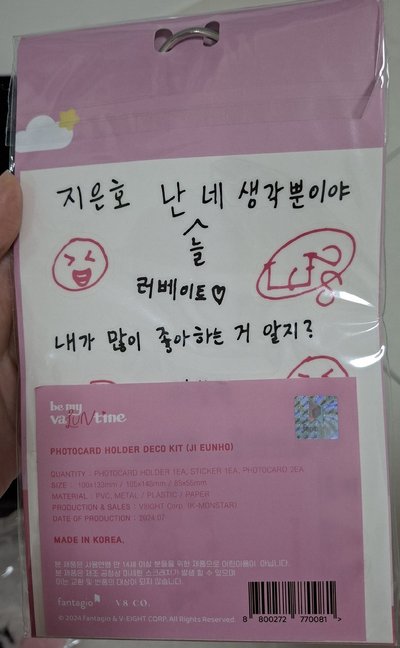 지은호 난 네 생각뿐이야
늘
러베이트♡
내가 많이 좋아하는 거 알지?
be my
vaLUNtine
PHOTOCARD HOLDER DECO KIT (JI EUNHO)
QUANTITY : PHOTOCARD HOLDER 1EA, STICKER 1EA, PHOTOCARD 2EA
MATERIAL : PVC, METAL / PLASTIC / PAPER
PRODUCTION & SALES : V8IGHT Corp. (K-MONSTAR)
DATE OF PRODUCTION : 2024.07
MADE IN KOREA.
본 제품은 사용연령 만 14세 이상 분들을 위한 제품으로 어린이용이 아닙니다.
본 제품은 제조 공정상 미세한 스크래치가 발생 할 수 있으며
이는 교환 및 반품의 대상이 되지 않습니다.
fantagio V8 CO.
© 2024 Fantagio & V-EIGHT CORP. All Rights Reserved.
8 800272 770081 >